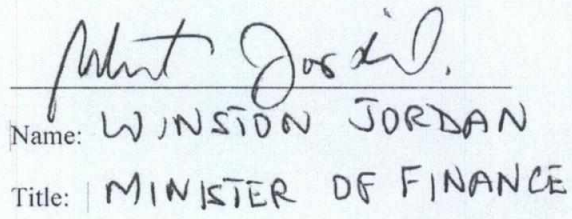 Jordan.
Name: WINSTON JORDAN
Title: MINISTER OF FINANCE